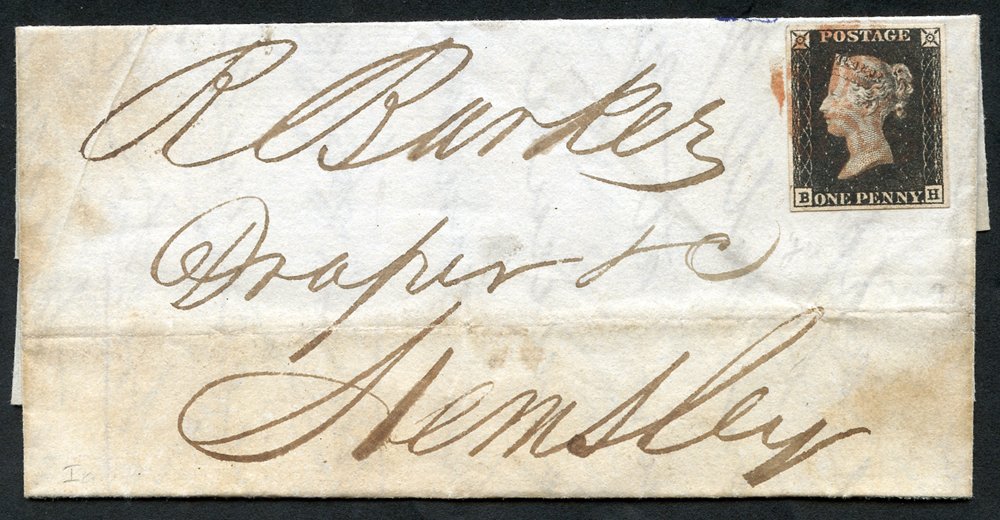 POSTAGE
B ONE PENNY. H
R Barker
Draper & c
Hemsley